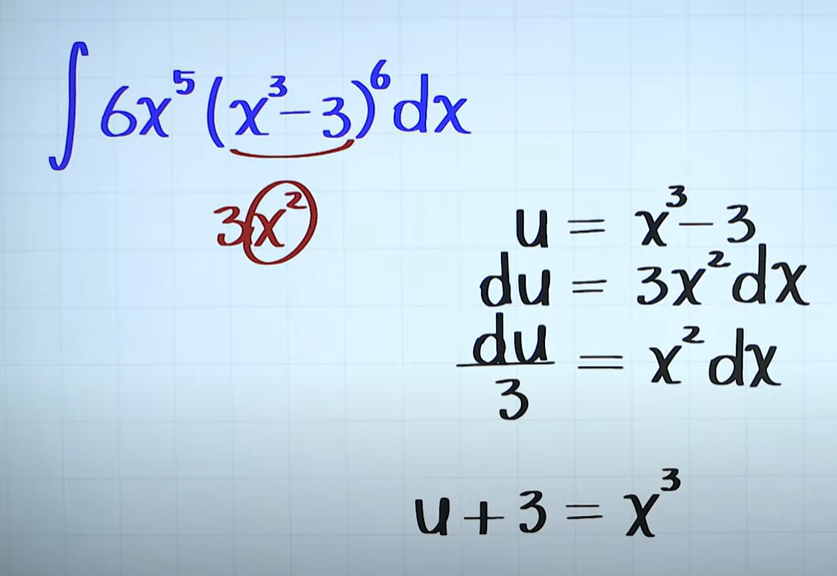 ∫ 6x⁵(x³−3)⁶dx
3x²
u = x³−3
du = 3x²dx
du/3 = x²dx
u+3 = x³